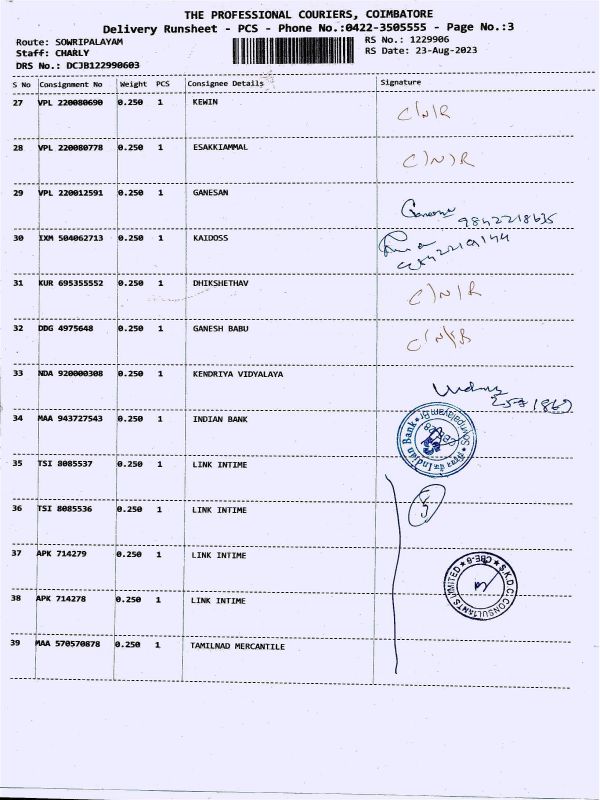 THE PROFESSIONAL COURIERS, COIMBATORE
Delivery Runsheet - PCS - Phone No.:0422-3505555 - Page No.:3
Route: SOWRIPALAYAM RS No.: 1229906
Staff: CHARLY RS Date: 23-Aug-2023
DRS No.: DCJB122990603
S No Consignment No Weight PCS Consignee Details Signature
27 VPL 220080690 0.250 1 KEWIN C/N/R
28 VPL 220080778 0.250 1 ESAKKIAMMAL C)N)R
29 VPL 220012591 0.250 1 GANESAN
9842218635
30 IXM 504062713 0.250 1 KAIDOSS
31 KUR 695355552 0.250 1 DHIKSHETHAV C)N/R
32 DDG 4975648 0.250 1 GANESH BABU C/N/R
33 NDA 920000308 0.250 1 KENDRIYA VIDYALAYA
34 MAA 943727543 0.250 1 INDIAN BANK
Indian Bank
35 TSI 8085537 0.250 1 LINK INTIME
36 TSI 8085536 0.250 1 LINK INTIME
5
37 APK 714279 0.250 1 LINK INTIME
S.K.D.C. CONSULTANTS LIMITED ★ CBE-6 ★
38 APK 714278 0.250 1 LINK INTIME
39 MAA 570570878 0.250 1 TAMILNAD MERCANTILE